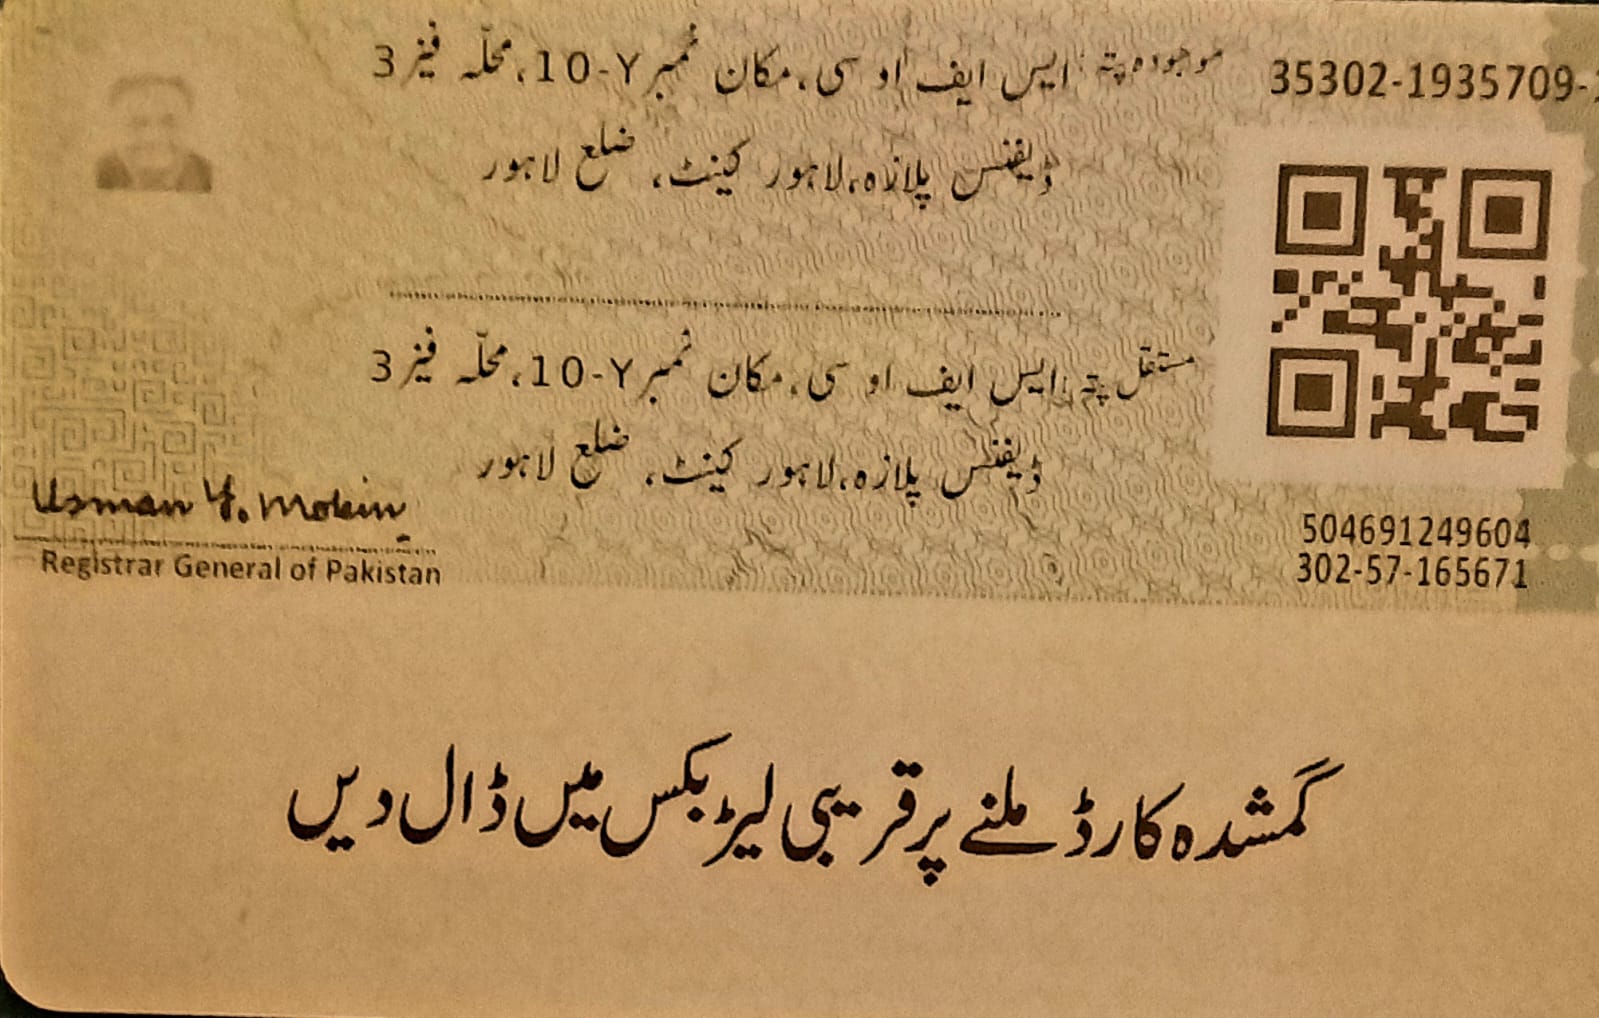 موجودہ پتہ: ایس ایف او سی، مکان نمبر 10-Y، محلّہ فیز 3
35302-1935709-
ڈیفنس پلازہ، لاہور کینٹ، ضلع لاہور
مستقل پتہ: ایس ایف او سی، مکان نمبر 10-Y، محلّہ فیز 3
ڈیفنس پلازہ، لاہور کینٹ، ضلع لاہور
Usman Y. Mobin
Registrar General of Pakistan
504691249604
302-57-165671
گمشدہ کارڈ ملنے پر قریبی لیٹر بکس میں ڈال دیں